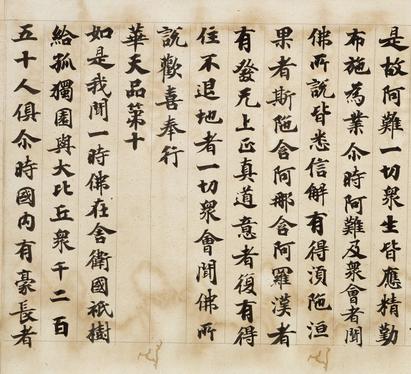 是故阿難一切衆生皆應精勤
布施為業尒時阿難及衆會者聞
佛所說皆悉信解有得湏陁洹
果者斯陁含阿那含阿羅漢者
有發无上正真道意者復有得
住不退地者一切衆會聞佛所
說歡喜奉行
華天品第十
如是我聞一時佛在舍衛國祇樹
給孤獨園與大比丘衆千二百
五十人俱尒時國内有豪長者